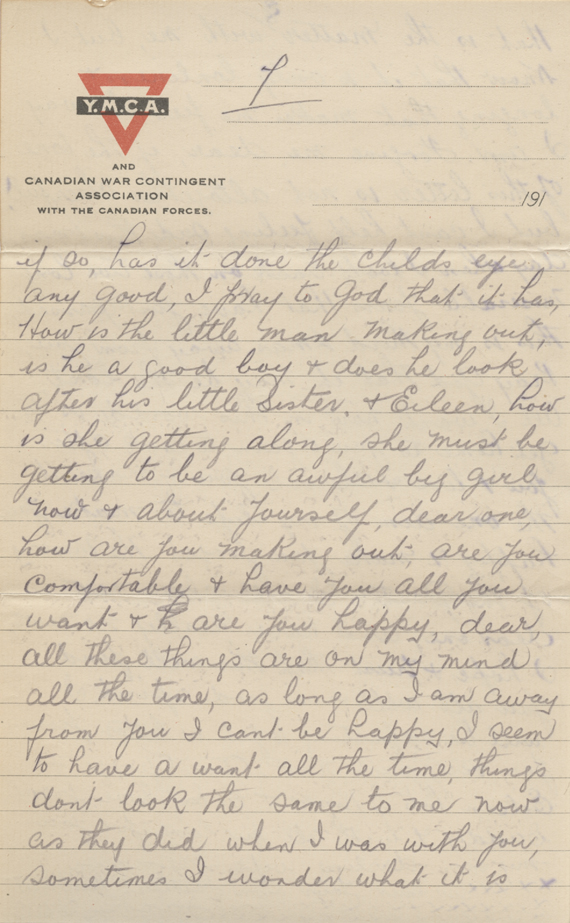 7
Y.M.C.A.
AND
CANADIAN WAR CONTINGENT
ASSOCIATION
WITH THE CANADIAN FORCES.
191
if so, has it done the childs eye
any good, I pray to God that it has,
How is the little man making out,
is he a good boy & does he look
after his little Sister, & Eileen, how
is she getting along, she must be
getting to be an awful big girl
now & about Yourself, dear one,
how are You making out, are You
Comfortable & have You all You
want & are You happy, dear,
all these things are on my mind
all the time, as long as I am away
from You I cant be happy, I seem
to have a want all the time, things
dont look the same to me now
as they did when I was with You,
sometimes I wonder what it is